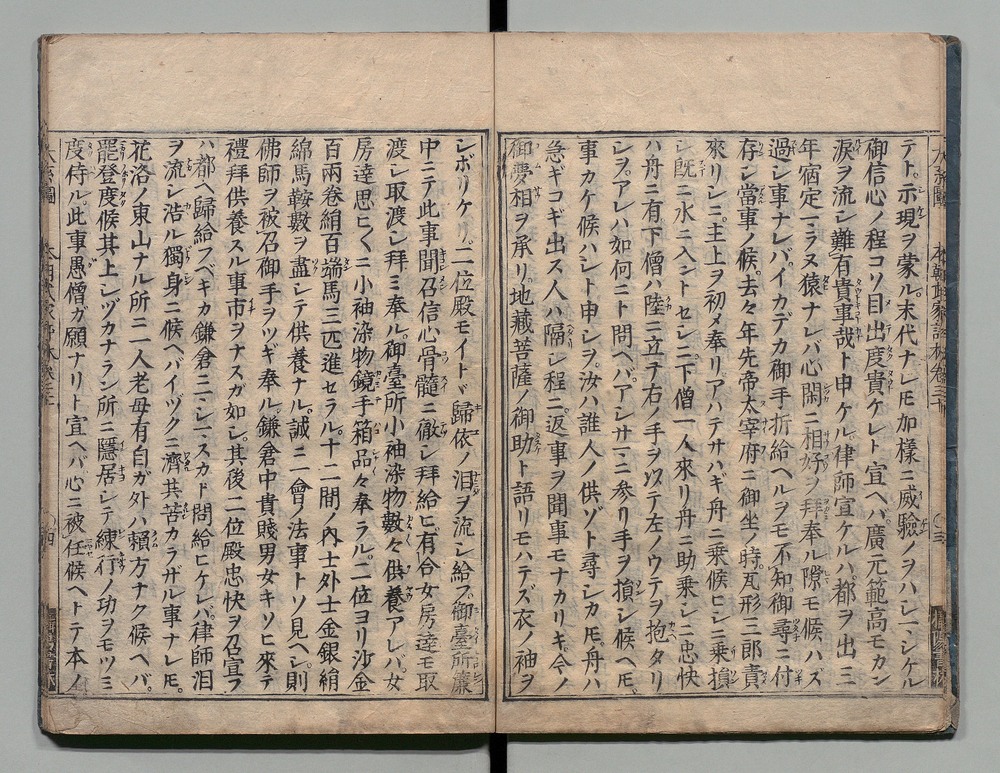 テト。示現ヲ蒙ル。末代ナレ𪜈加様ニ威驗ノヲハシマシケル
御信心ノ程コソ目出度貴ケレト宣ヘハ廣元範高モカン
涙ヲ流シ難有貴事哉ト申ケル。律師宣ケルハ都ヲ出三
年宿定マラヌ猿ナレバ心閑ニ相好ヲ拝奉ル隙モ候ハズ
過シ事ナレバイカデカ御手折給ヘルヲモ不知。御尋ニ付
存シ當事ノ候。去々年先帝太宰府ニ御坐ノ時。瓦形三郎責
來リシニ。主上ヲ初メ奉リアハテサハギ舟ニ乗候ヒシニ乗損
シ既ニ水ニ入ントセシニ下僧一人來リ舟ニ助乗シニ忠快
ハ舟ニ有下僧ハ陸ニ立テ右ノ手ヲ以テ左ノウテヲ抱タリ
シヲ。アレハ如何ニト問ヘバ。アシサマニ参リ手ヲ損シ候ヘ𪜈
事カケ候ハシト申シヲ。汝ハ誰人ノ供ゾト尋シカ𪜈。舟ハ
急ギコギ出ス人ハ隔シ程ニ。返事ヲ聞事モナカリキ。今ノ
御夢相ヲ承リ。地藏菩薩ノ御助ト語リモハテズ衣ノ袖ヲ
本朝武家評林 卷三十 ○三
シボリケリ。二位殿モイトヾ歸依ノ泪ヲ流シ給フ。御臺所簾
中ニテ此事聞召信心骨髓ニ徹シ拜給ヒ有合女房達モ取
渡シ取渡シ拜ミ奉ル御臺所小袖染物數々供養アレバ。女
房達思ヒ〱ニ小袖染物鏡手箱品々奉ラル。二位ヨリ沙金
百兩卷絹百端馬三匹進セラル。十二間ノ内士外士金銀絹
綿馬鞍數ヲ盡シテ供養ナル。誠ニ一會ノ法事トソ見ヘシ。則
佛師ヲ被召御手ヲツギ奉ル。鎌倉中貴賤男女キソヒ來テ
禮拜供養スル事市ヲナスガ如シ。其後二位殿忠快ヲ召宣フ
ハ都ヘ歸給フベキカ鎌倉ニマシマスカト問給ヒケレバ。律師泪
ヲ流シ浩ル獨身ニ候ヘバイヅクニ濟共苦カラザル事ナレ𪜈。
花洛ノ東山ナル所ニ一人老母有自ガ外ハ頼方ナク候ヘバ。
罷登度候其上シヅカナラン所ニ隱居シテ練行ノ功ヲモツミ
度侍ル。此事愚僧ガ願ナリト宣ヘバ心ニ被任候ヘトテ本ノ